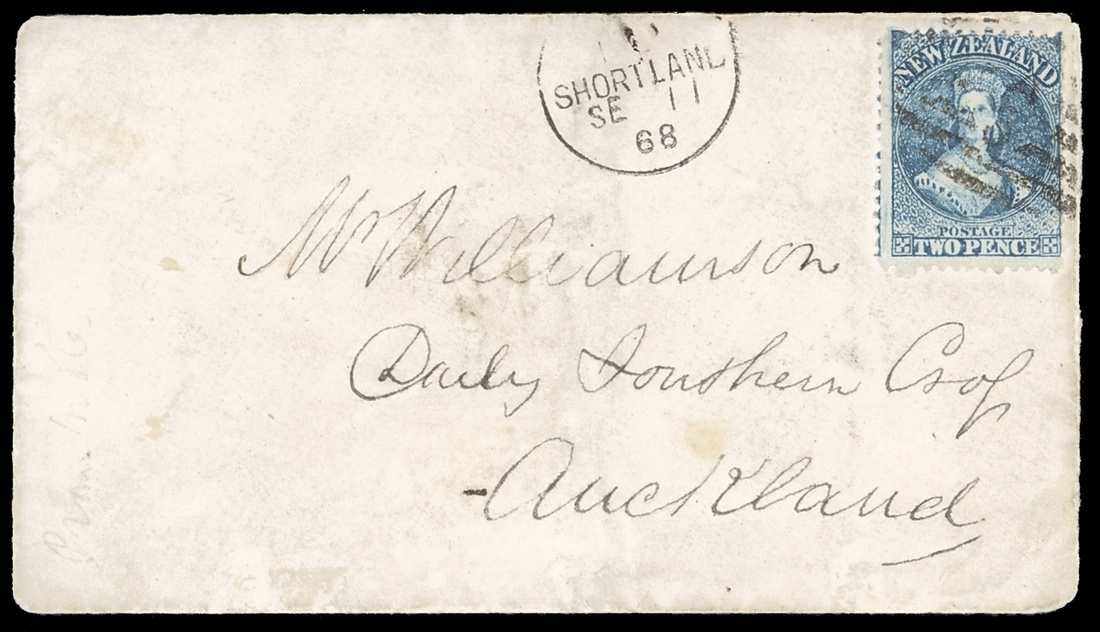 SHORTLAND
SE 11
68
NEW ZEALAND
POSTAGE
TWO PENCE
Mr Williamson
Daily Southern
Auckland